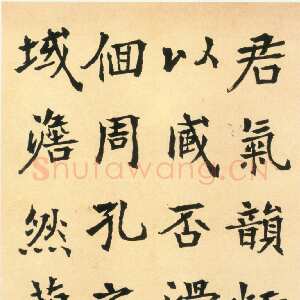 君氣韻
以臧否
佪周孔
域澹然
Shufawang.CN